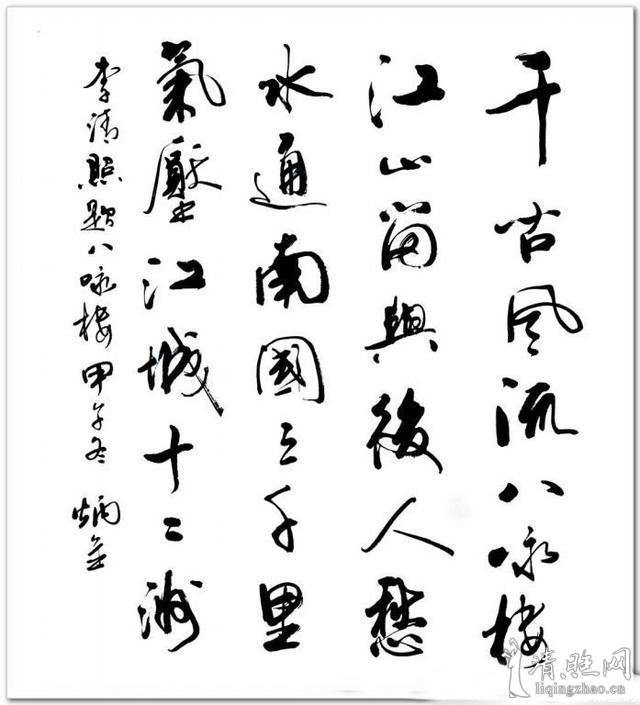 千古风流八咏楼
江山留與後人愁
水通南國三千里
氣壓江城十二洲
李清照题八咏楼 甲午冬 炳
清照网
liqingzhao.cn